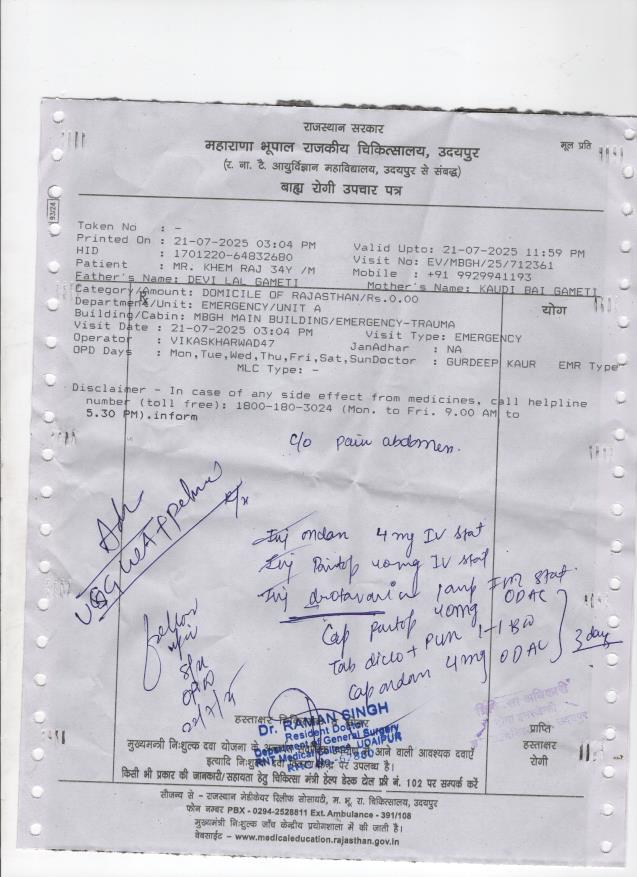 राजस्थान सरकार
महाराणा भूपाल राजकीय चिकित्सालय, उदयपुर
मूल प्रति
(र. ना. टै. आयुर्विज्ञान महाविद्यालय, उदयपुर से संबद्ध)
बाह्य रोगी उपचार पत्र
93/24
Token No : -
Printed On : 21-07-2025 03:04 PM Valid Upto: 21-07-2025 11:59 PM
HID : 1701220-64832680 Visit No: EV/MBGH/25/712361
Patient : MR. KHEM RAJ 34Y /M Mobile : +91 9929941193
Father's Name: DEVI LAL GAMETI Mother's Name: KAUDI BAI GAMETI
Category/Amount: DOMICILE OF RAJASTHAN/Rs.0.00
योग
Department/Unit: EMERGENCY/UNIT A
Building/Cabin: MBGH MAIN BUILDING/EMERGENCY-TRAUMA
Visit Date : 21-07-2025 03:04 PM Visit Type: EMERGENCY
Operator : VIKASKHARWAD47 JanAdhar : NA
OPD Days : Mon,Tue,Wed,Thu,Fri,Sat,SunDoctor : GURDEEP KAUR EMR Type
MLC Type: -
Disclaimer - In case of any side effect from medicines, call helpline
number (toll free): 1800-180-3024 (Mon. to Fri. 9.00 AM to
5.30 PM).inform
c/o pain abdomen.
Adv
USG whole Abdomen
Rx
Inj ondan 4mg IV stat
Inj Pantop 40mg IV stat
Inj drotavarin 1amp IM stat.
Cap Pantop 40mg ODAC
Tab diclo + PCM 1-1 BD
Cap ondan 4mg ODAC
3 day
follow
OPD
22/7/25
हस्ताक्षर
Dr. RAMAN SINGH
Resident Doctor
Department of General Surgery
RNT Medical College, UDAIPUR
प्राप्ति
हस्ताक्षर
रोगी
मुख्यमंत्री निःशुल्क दवा योजना के आने वाली आवश्यक दवाएँ
इत्यादि निःशुल्क केन्द्र पर उपलब्ध है।
किसी भी प्रकार की जानकारी/सहायता हेतु चिकित्सा मंत्री हेल्प डेस्क टोल फ्री नं. 102 पर सम्पर्क करें
सौजन्य से - राजस्थान मेडीकेयर रिलीफ सोसायटी, म. भू. रा. चिकित्सालय, उदयपुर
फोन नम्बर PBX - 0294-2528811 Ext. Ambulance - 391/108
मुख्यमंत्री निःशुल्क जाँच केन्द्रीय प्रयोगशाला में की जाती है।
वेबसाईट – www.medicaleducation.rajasthan.gov.in